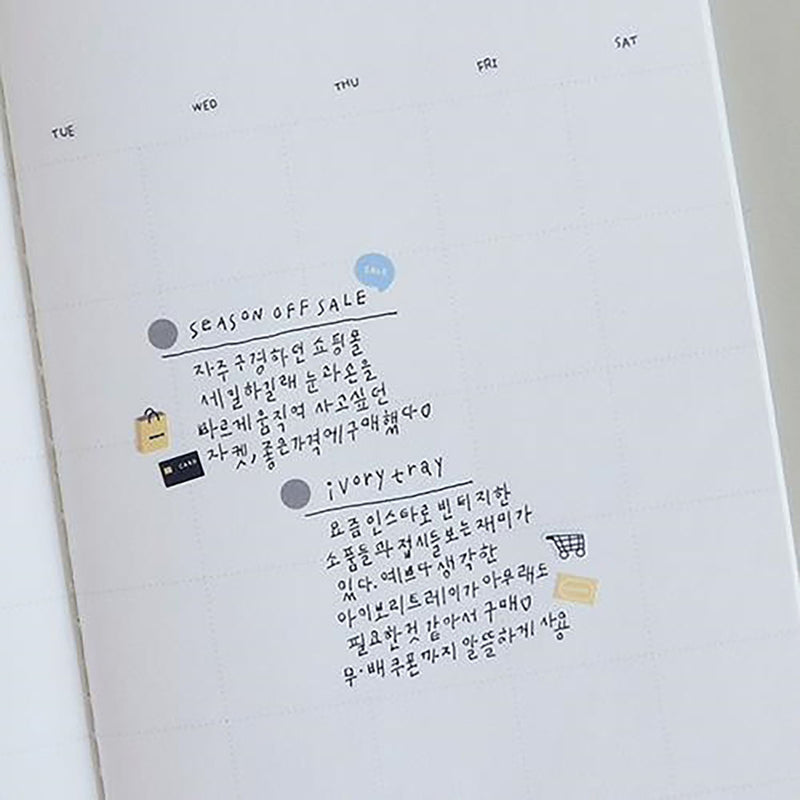 TUE WED THU FRI SAT
SALE
SEASON OFF SALE
자주 구경하던 쇼핑몰
세일하길래 눈과 손을
빠르게 움직여 사고싶던
자켓, 좋은가격에 구매했다♡
CARD
ivory tray
요즘 인스타로 빈티지한
소품들과 접시들 보는 재미가
있다. 예쁘다 생각한
아이보리트레이가 아무래도
필요한 것 같아서 구매♡
무·배 쿠폰까지 알뜰하게 사용